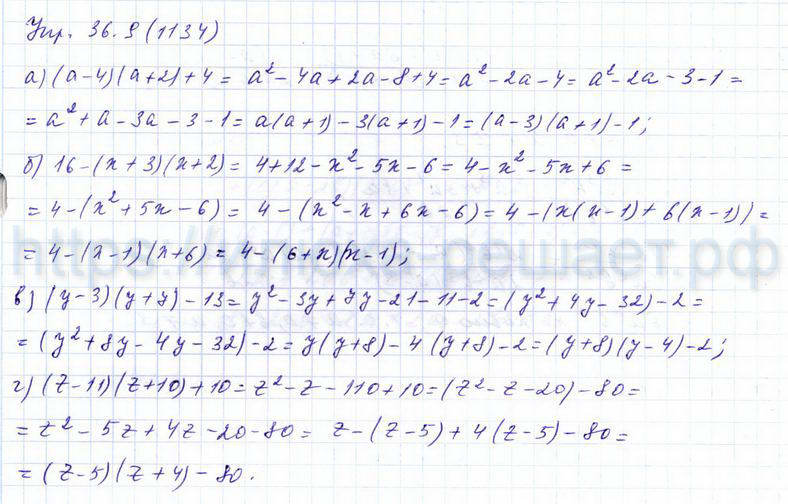 Упр. 36.9 (1134)
а) (a-4)(a+2)+4 = a²-4a+2a-8+4 = a²-2a-4 = a²-2a-3-1 =
= a²+a-3a-3-1 = a(a+1)-3(a+1)-1 = (a-3)(a+1)-1;
б) 16-(x+3)(x+2) = 4+12-x²-5x-6 = 4-x²-5x+6 =
= 4-(x²+5x-6) = 4-(x²-x+6x-6) = 4-(x(x-1)+6(x-1)) =
= 4-(x-1)(x+6) = 4-(6+x)(x-1);
https://итика-решает.рф
в) (y-3)(y+7)-13 = y²-3y+7y-21-11-2 = (y²+4y-32)-2 =
= (y²+8y-4y-32)-2 = y(y+8)-4(y+8)-2 = (y+8)(y-4)-2;
г) (z-11)(z+10)+10 = z²-z-110+10 = (z²-z-20)-80 =
= z²-5z+4z-20-80 = z-(z-5)+4(z-5)-80 =
= (z-5)(z+4)-80.